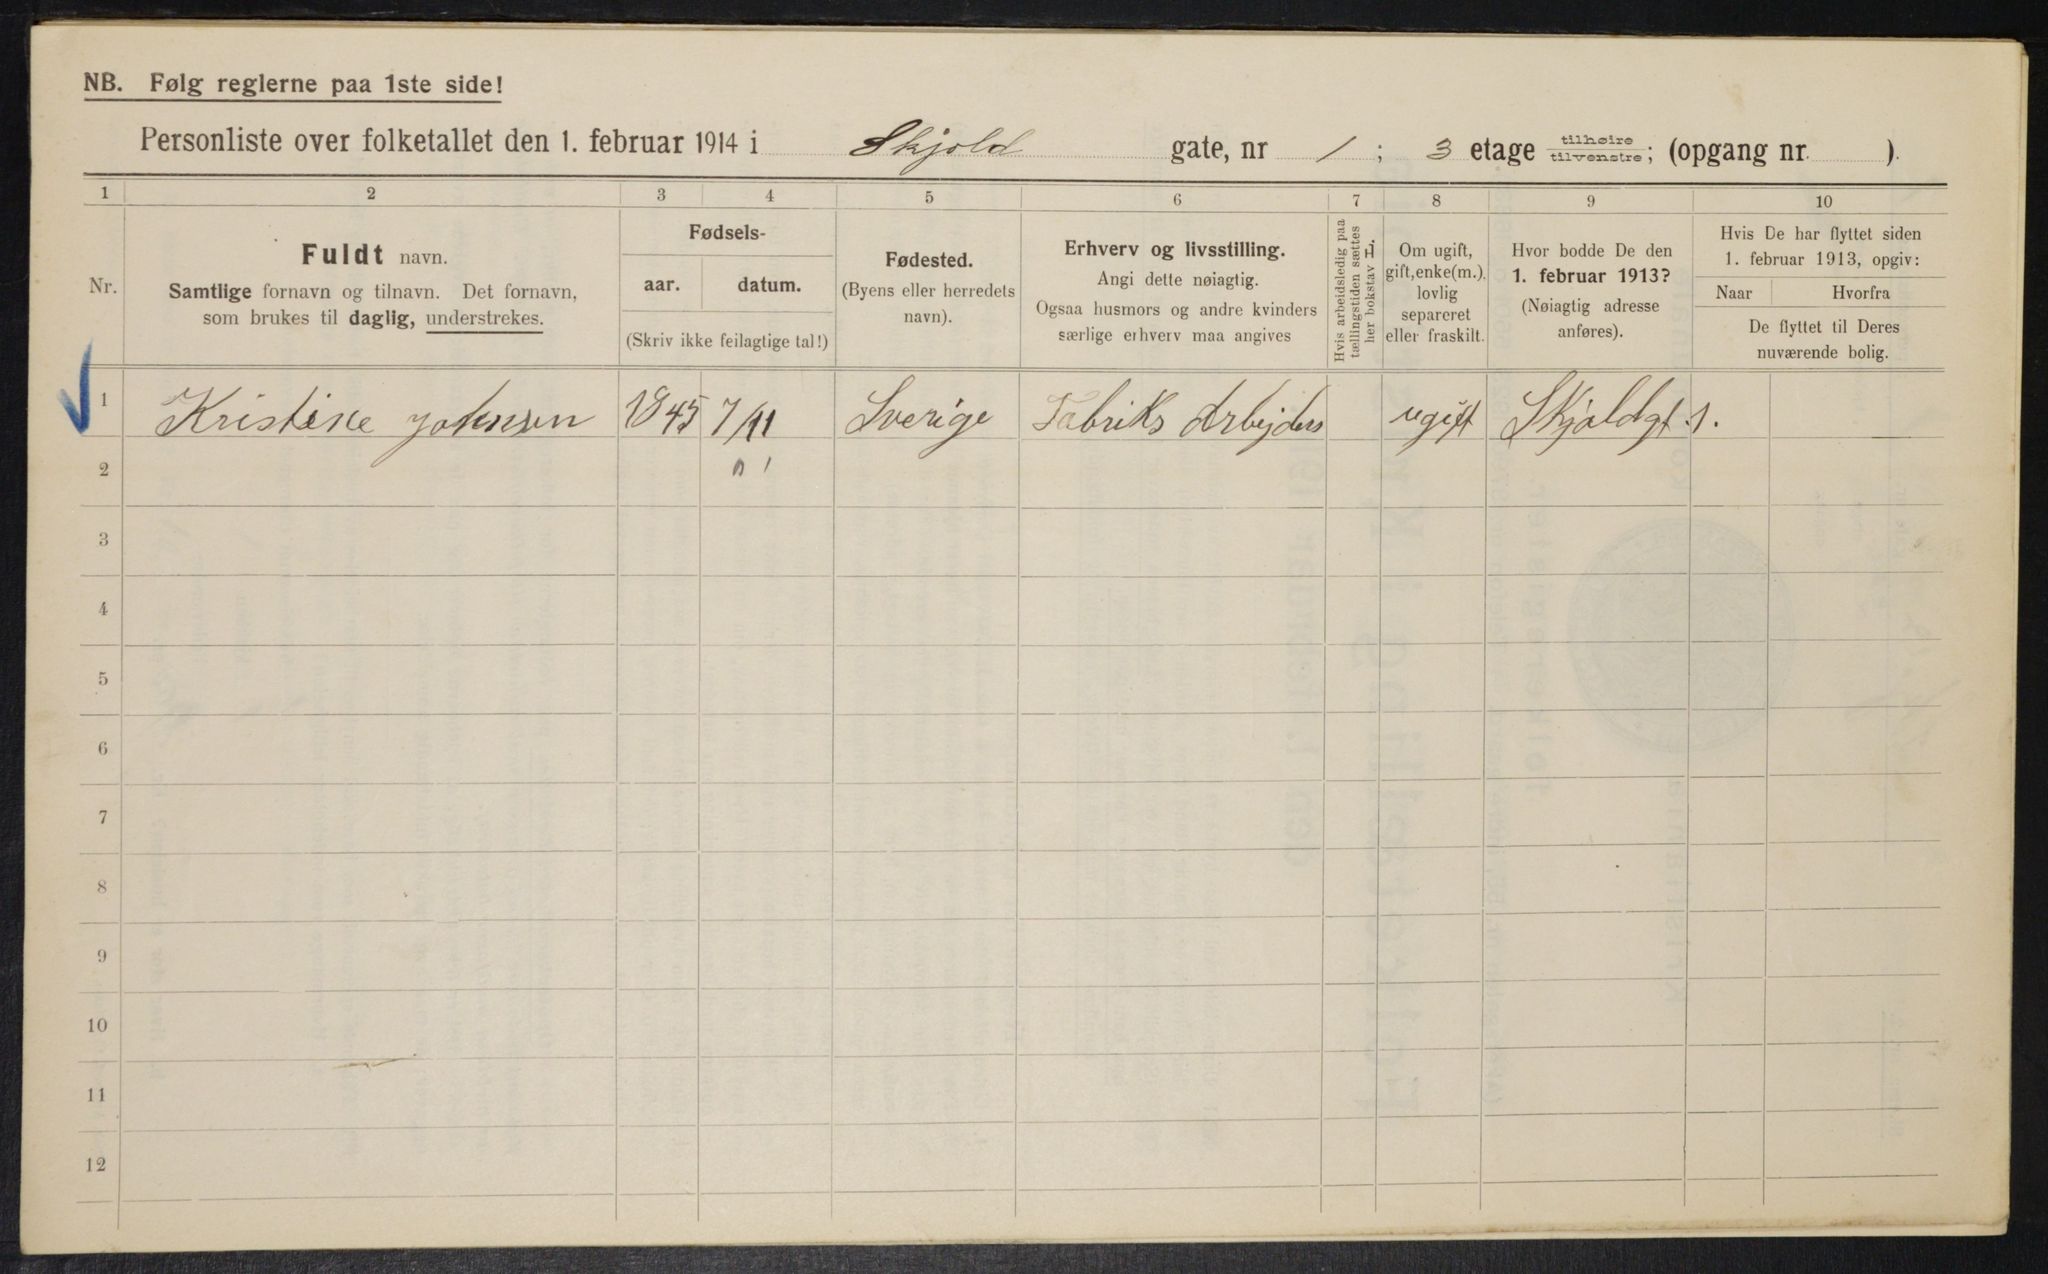 NB. Følg reglerne paa 1ste side!
Personliste over folketallet den 1. februar 1914 i Skjold gate, nr 1; 3 etage tilhøire tilvenstre; (opgang nr. ).
1 2 3 4 5 6 7 8 9 10
Nr.
Fuldt navn.
Samtlige fornavn og tilnavn. Det fornavn,
som brukes til daglig, understrekes.
Fødsels-
aar. datum.
(Skriv ikke feilagtige tal!)
Fødested.
(Byens eller herredets
navn).
Erhverv og livsstilling.
Angi dette nøiagtig.
Ogsaa husmors og andre kvinders
særlige erhverv maa angives
Hvis arbeidsledig paa
tællingstiden sættes
her bokstav L.
Om ugift,
gift, enke(m.),
lovlig
separeret
eller fraskilt.
Hvor bodde De den
1. februar 1913?
(Nøiagtig adresse
anføres).
Hvis De har flyttet siden
1. februar 1913, opgiv:
Naar Hvorfra
De flyttet til Deres
nuværende bolig.
1 Kristine Johnsen 1845 7/11 Sverige Fabriks Arbejders ugift Skjoldgt. 1.
2
3
4
5
6
7
8
9
10
11
12